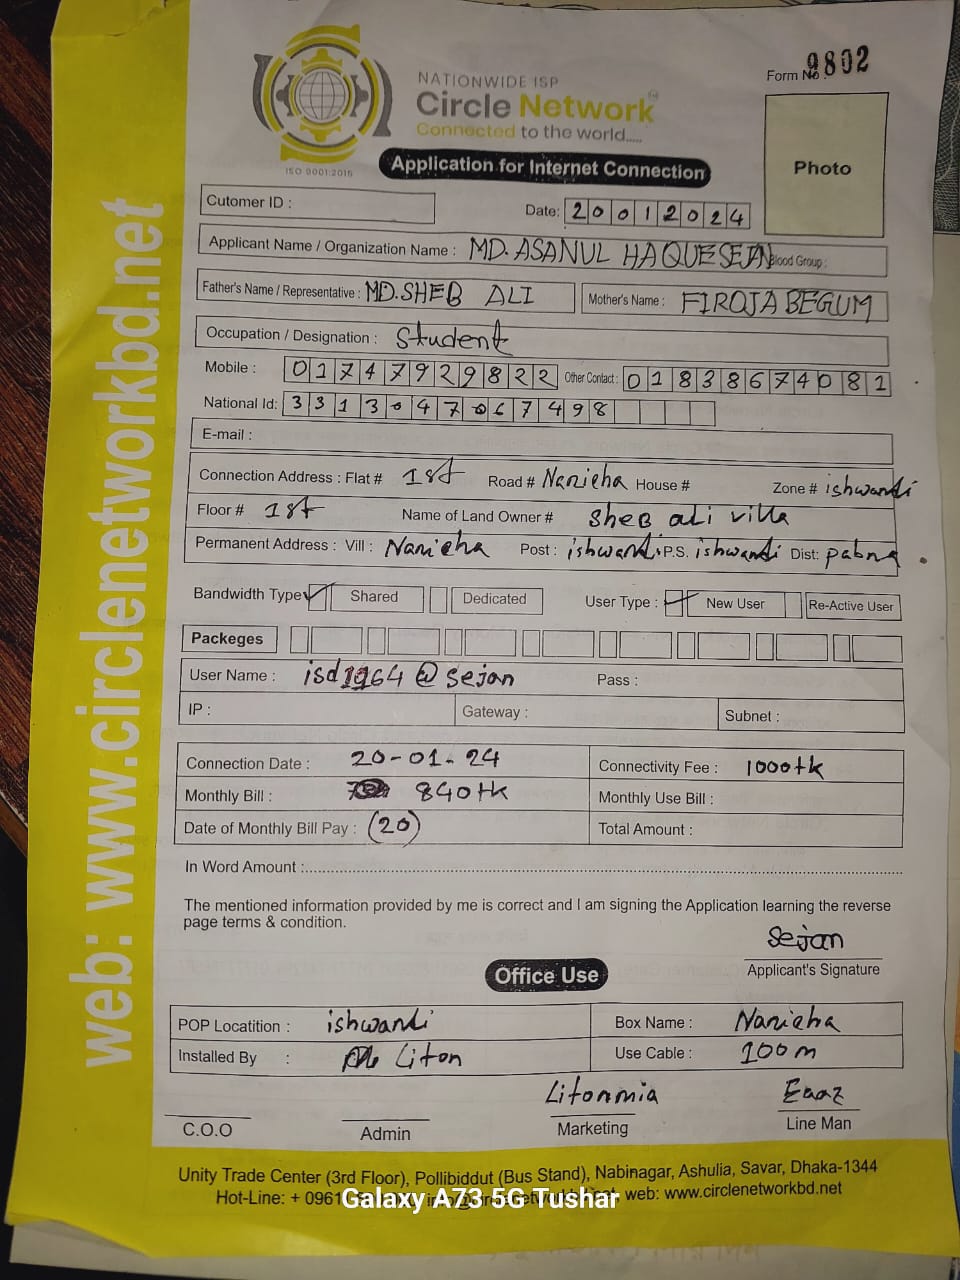 NATIONWIDE ISP
Circle Network
Connected to the world.....
ISO 9001:2015
Form No : 9802
Application for Internet Connection
Photo
Cutomer ID :
Date: 20012024
Applicant Name / Organization Name : MD. ASANUL HAQUE SEJAN Blood Group :
Father's Name / Representative : MD. SHEB ALI Mother's Name : FIROJA BEGUM
Occupation / Designation : Student
Mobile : 01747929822 Other Contact : 01838674081
National Id: 3313047067498
E-mail :
Connection Address : Flat # 1st Road # Naricha House # Zone # ishwardi
Floor # 1st Name of Land Owner # SheB ali villa
Permanent Address : Vill : Naricha Post : ishwardi P.S. ishwardi Dist: pabna
Bandwidth Type Shared Dedicated User Type : New User Re-Active User
Packeges
User Name : isd1964@sejan Pass :
IP : Gateway : Subnet :
Connection Date : 20-01-24 Connectivity Fee : 1000tk
Monthly Bill : 840tk Monthly Use Bill :
Date of Monthly Bill Pay : (20) Total Amount :
In Word Amount :
The mentioned information provided by me is correct and I am signing the Application learning the reverse
page terms & condition.
Sejan
Applicant's Signature
Office Use
POP Locatition : ishwardi Box Name : Naricha
Installed By : Liton Use Cable : 100m
Litonmia
C.O.O Admin Marketing Line Man
Unity Trade Center (3rd Floor), Pollibiddut (Bus Stand), Nabinagar, Ashulia, Savar, Dhaka-1344
Hot-Line: + 0961 web: www.circlenetworkbd.net
Galaxy A73 5G Tushar
web: www.circlenetworkbd.net